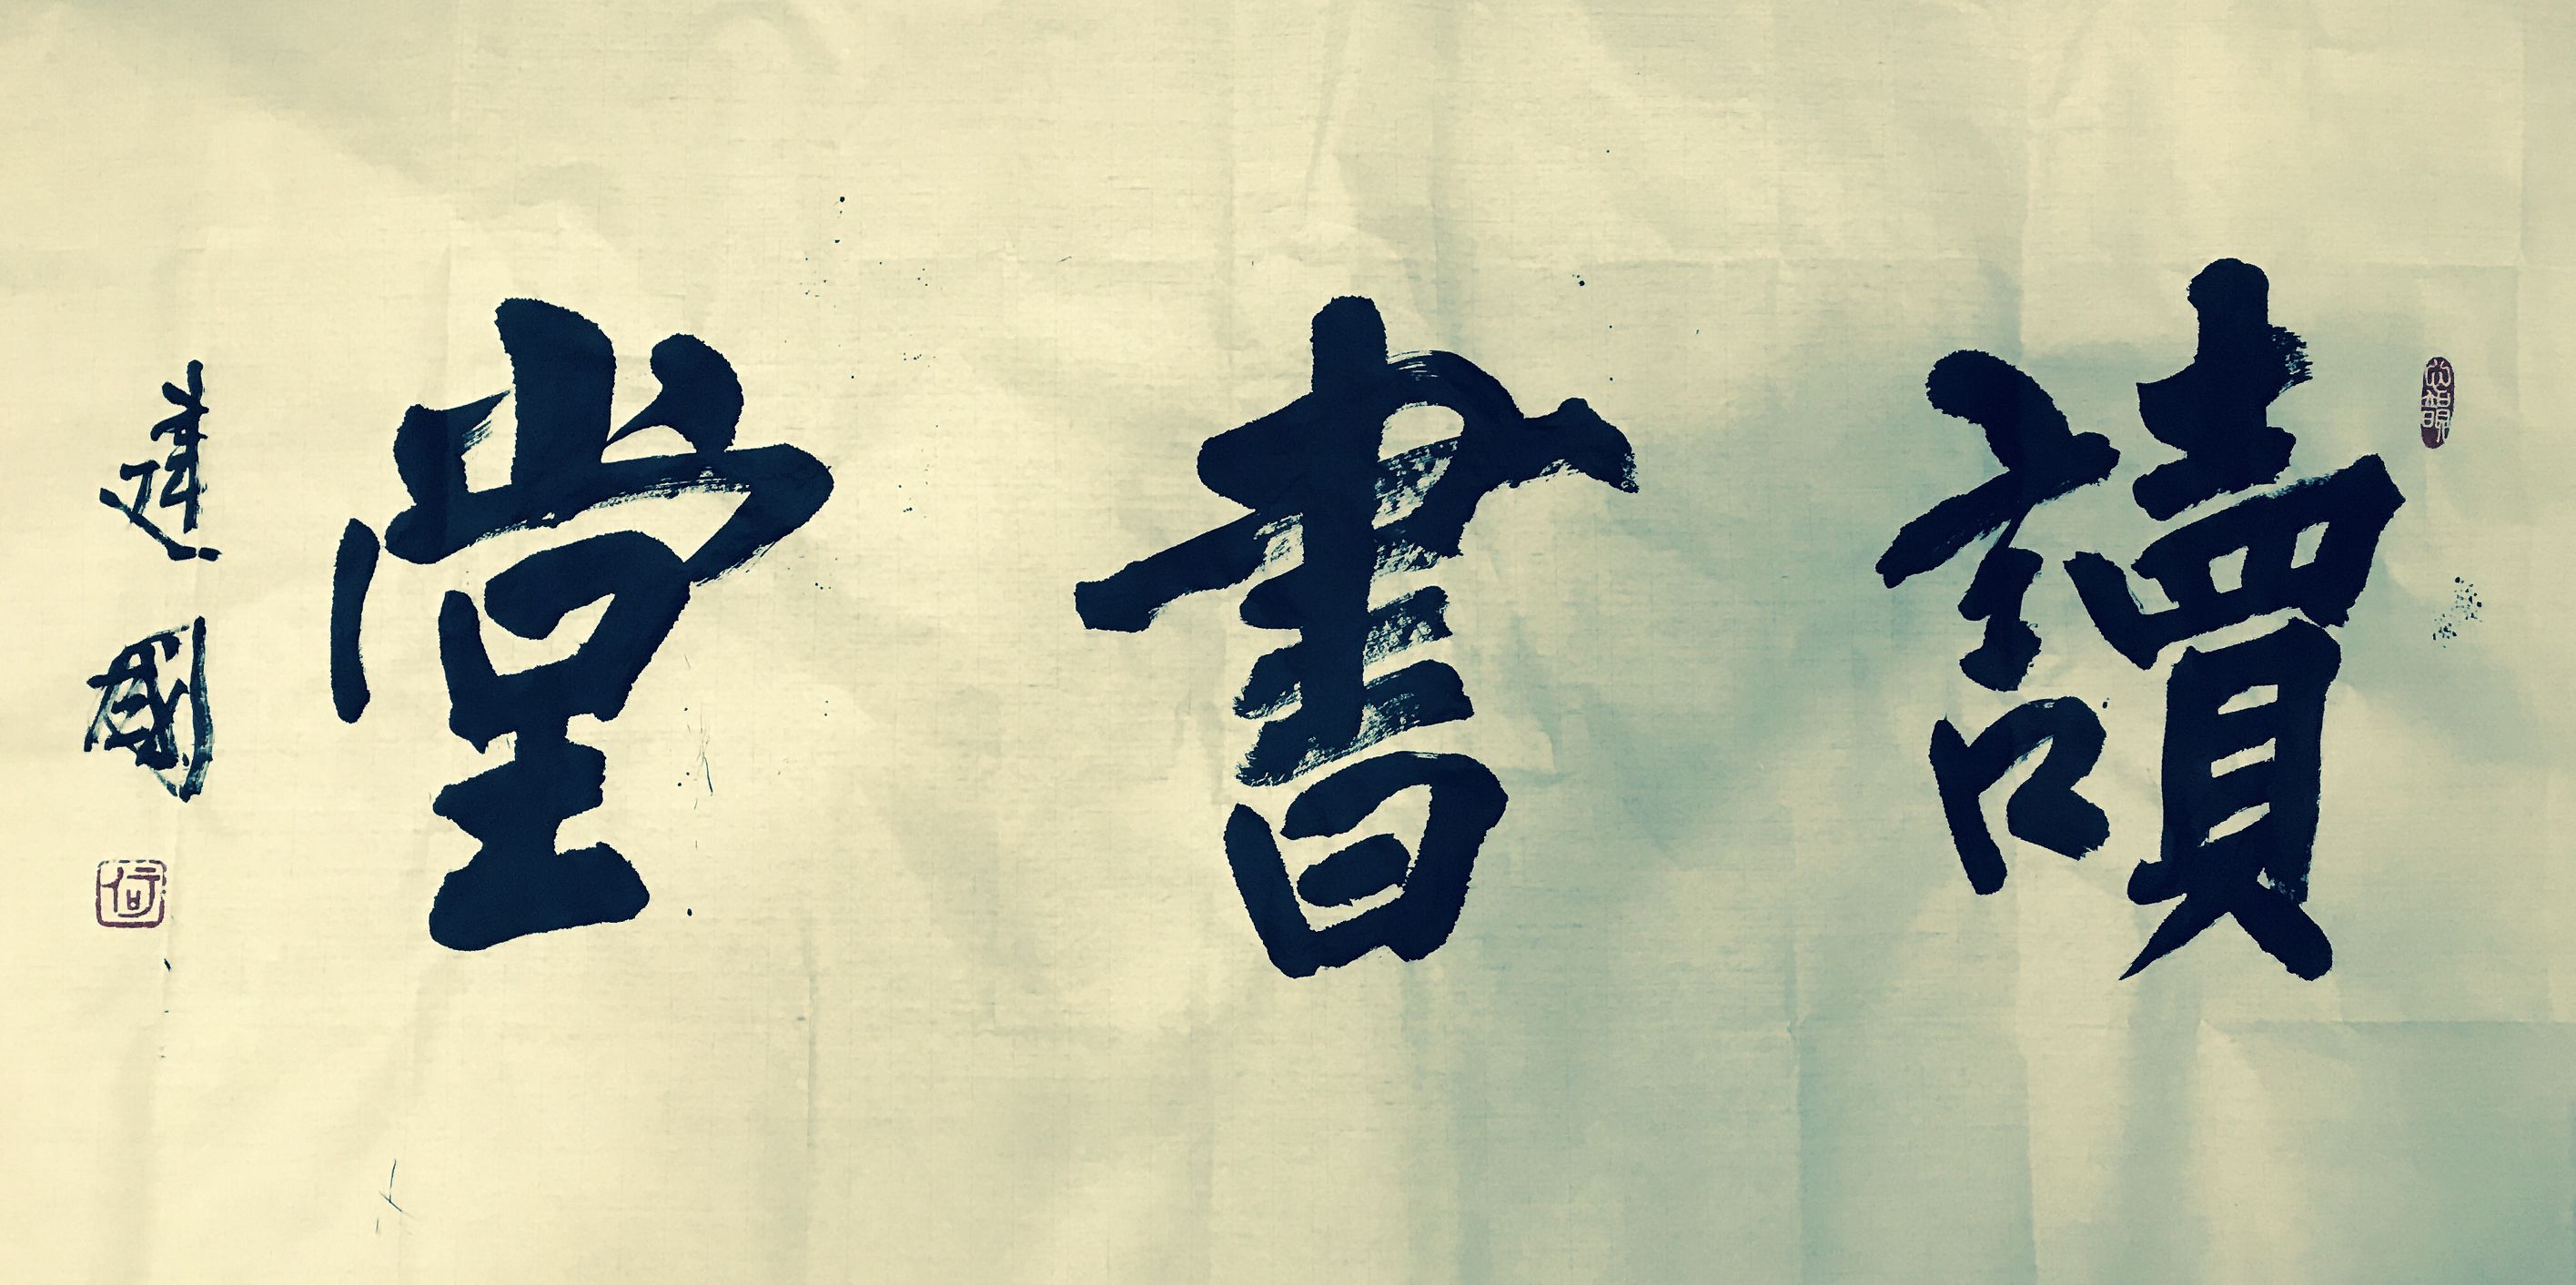 讀書堂
建國
何